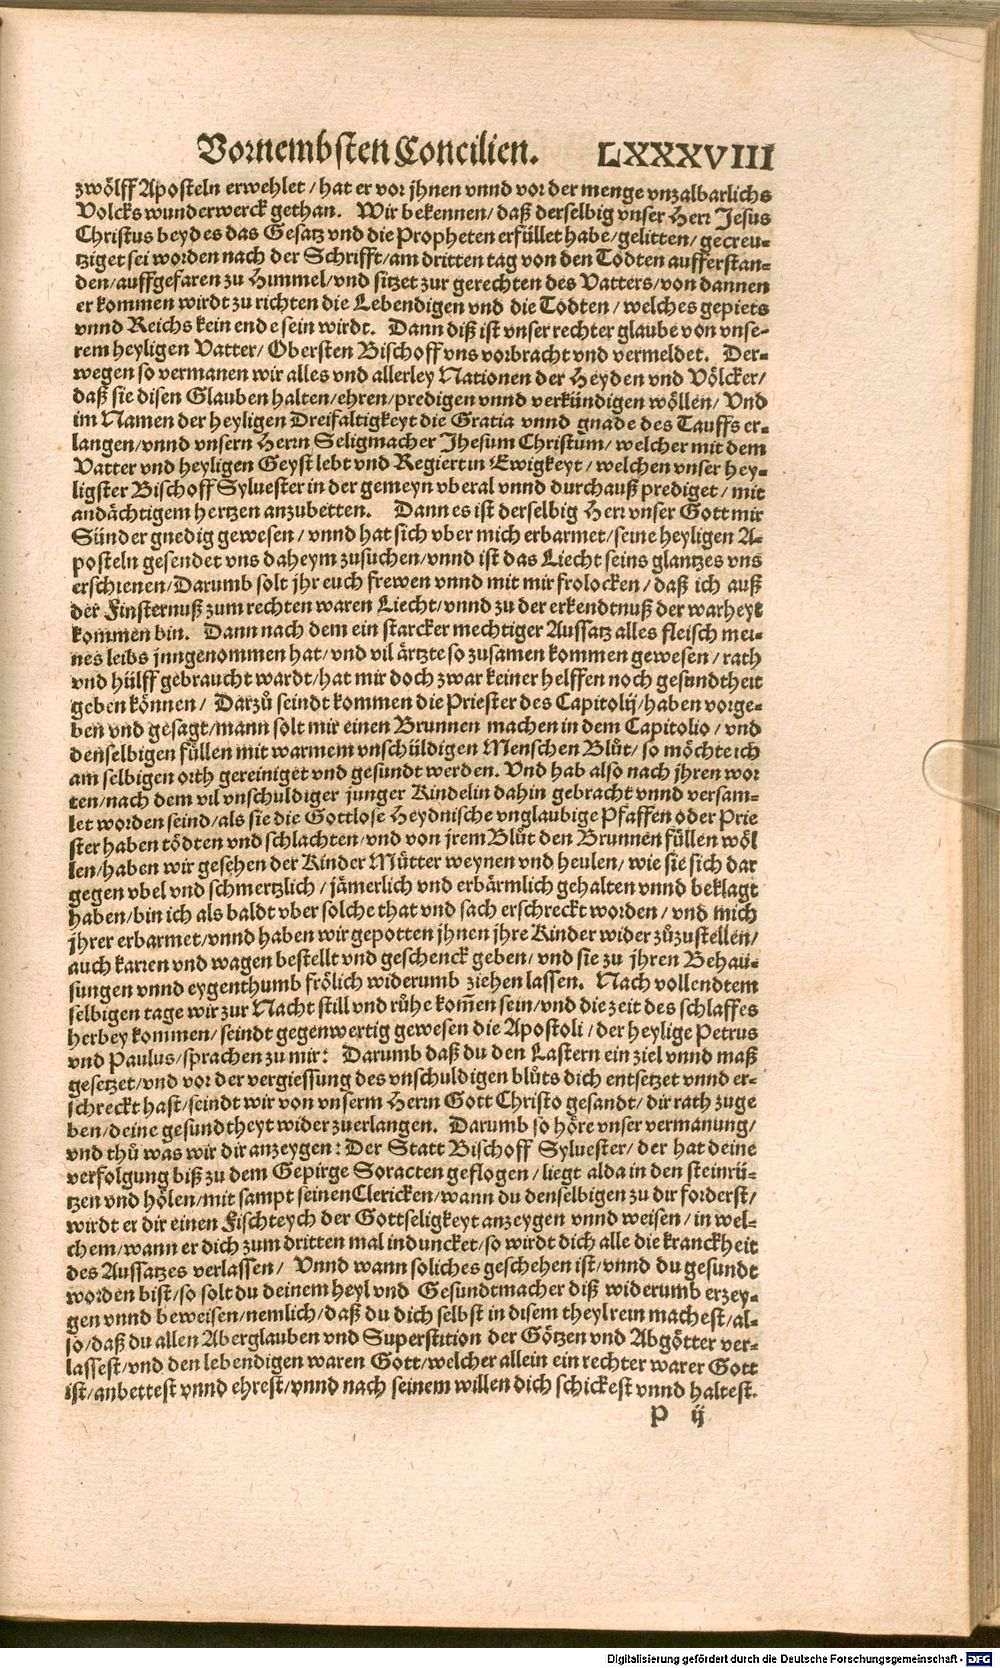 Vornembsten Concilien. LXXXVIII
zwölff Aposteln erwehlet / hat er vor jhnen vnnd vor der menge vnzalbarlichs
Volcks wunderwerck gethan. Wir bekennen / daß derselbig vnser Herr Jesus
Christus beydes das Gesatz vnd die Propheten erfüllet habe / gelitten / gecreu-
tziget sei worden nach der Schrifft / am dritten tag von den Todten aufferstan-
den / auffgefaren zu Himmel / vnd sitzet zur gerechten des Vatters / von dannen
er kommen wirdt zu richten die Lebendigen vnd die Todten / welches gepiets
vnnd Reichs kein ende sein wirdt. Dann diß ist vnser rechter glaube von vnse-
rem heyligen Vatter / Obersten Bischoff vns vorbracht vnd vermeldet. Der-
wegen so vermanen wir alles vnd allerley Nationen der Heyden vnd Völcker /
daß sie disen Glauben halten / ehren / predigen vnnd verkündigen wöllen / Vnd
im Namen der heyligen Dreifaltigkeyt die Gratia vnnd gnade des Tauffs er-
langen / vnnd vnsern Herrn Seligmacher Jhesum Christum / welcher mit dem
Vatter vnd heyligen Geyst lebt vnd Regiert in Ewigkeyt / welchen vnser hey-
ligster Bischoff Syluester in der gemeyn vberal vnnd durchauß prediget / mit
andächtigem hertzen anzubetten. Dann es ist derselbig Herr vnser Gott mir
Sünder gnedig gewesen / vnnd hat sich vber mich erbarmet / seine heyligen A-
posteln gesendet vns daheym zusuchen / vnnd ist das Liecht seins glantzes vns
erschienen / Darumb solt jhr euch frewen vnnd mit mir frolocken / daß ich auß
der Finsternuß zum rechten waren Liecht / vnnd zu der erkendtnuß der warheyt
kommen bin. Dann nach dem ein starcker mechtiger Aussatz alles fleisch mei-
nes leibs jnngenommen hat / vnd vil ärtzte so zusamen kommen gewesen / rath
vnd hülff gebraucht wardt / hat mir doch zwar keiner helffen noch gesundtheit
geben können / Darzů seindt kommen die Priester des Capitolij / haben vorge-
ben vnd gesagt / mann solt mir einen Brunnen machen in dem Capitolio / vnd
denselbigen füllen mit warmem vnschüldigen Menschen Blůt / so möchte ich
am selbigen orth gereiniget vnd gesundt werden. Vnd hab also nach jhren wor
ten / nach dem vil vnschuldiger junger Kindelin dahin gebracht vnnd versam-
let worden seind / als sie die Gottlose Heydnische vnglaubige Pfaffen oder Prie
ster haben tödten vnd schlachten / vnd von jrem Blůt den Brunnen füllen wöl
len / haben wir gesehen der Kinder Mütter weynen vnd heulen / wie sie sich dar
gegen vbel vnd schmertzlich / jämerlich vnd erbärmlich gehalten vnnd beklagt
haben / bin ich als baldt vber solche that vnd sach erschreckt worden / vnd mich
jhrer erbarmet / vnnd haben wir gepotten jhnen jhre Kinder wider zůzustellen /
auch karren vnd wagen bestellt vnd geschenck geben / vnd sie zu jhren Behau-
sungen vnnd eygenthumb frölich widerumb ziehen lassen. Nach vollendtem
selbigen tage wir zur Nacht still vnd růhe kom̃en sein / vnd die zeit des schlaffes
herbey kommen / seindt gegenwertig gewesen die Apostoli / der heylige Petrus
vnd Paulus / sprachen zu mir: Darumb daß du den Lastern ein ziel vnnd maß
gesetzet / vnd vor der vergiessung des vnschuldigen blůts dich entsetzet vnnd er-
schreckt hast / seindt wir von vnserm Herrn Gott Christo gesandt / dir rath zuge
ben / deine gesundtheyt wider zuerlangen. Darumb so höre vnser vermanung /
vnd thů was wir dir anzeygen: Der Statt Bischoff Syluester / der hat deine
verfolgung biß zu dem Gepirge Soracten geflogen / liegt alda in den steinrü-
tzen vnd hölen / mit sampt seinen Clericken / wann du denselbigen zu dir forderst /
wirdt er dir einen Fischteych der Gottseligkeyt anzeygen vnnd weisen / in wel-
chem / wann er dich zum dritten mal induncket / so wirdt dich alle die kranckheit
des Aussatzes verlassen / Vnnd wann soliches geschehen ist / vnnd du gesundt
worden bist / so solt du deinem heyl vnd Gesundtmacher diß widerumb erzey-
gen vnnd beweisen / nemlich / daß du dich selbst in disem theyl rein machest / al-
so / daß du allen Aberglauben vnd Superstition der Götzen vnd Abgötter ver-
lassest / vnd den lebendigen waren Gott / welcher allein ein rechter warer Gott
ist / anbettest vnnd ehrest / vnnd nach seinem willen dich schickest vnnd haltest.
P ij
Digitalisierung gefördert durch die Deutsche Forschungsgemeinschaft - DFG